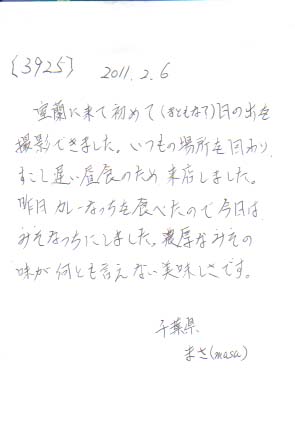 {3925} 2011.2.6
室蘭に来て初めて(まともな?)日の出を
撮影できました。いつもの場所を回わり
すこし遅い昼食のため来店しました。
昨日カレーなっちを食べたので今日は
みそなっちにしました。濃厚なみその
味が何とも言えない美味しさです。
千葉県
まさ(masa)